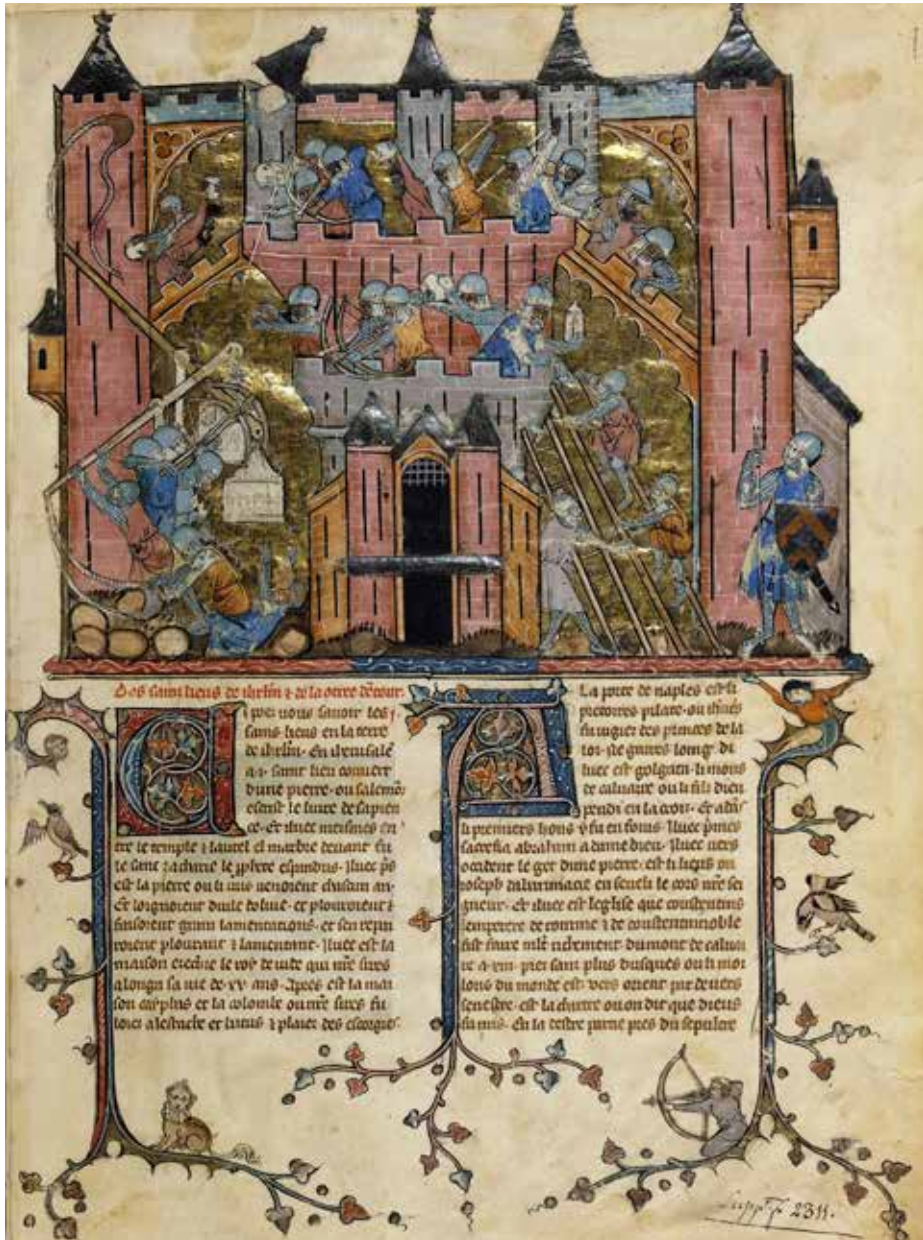 Des sains lieus de ihrlm & de la terre dentour.
i poes nous savoir les
sains lieus en la terre
de ihrlm. En iherusalē
a .i. saint lieu couvert
dune pierre. ou salemō
escrist le livre de sapien
ce. Et iluec meismes en
tre le temple & lautel el marbre devant fu
le sanc zacharie le pphete espandus. Iluec ps
est la pierre ou li iuis venoient chascun an.
et loignoient duile dolive. et plouroient &
faisoient grans lamentations. et sen repai
roient plourant & lamentant. Iluec est la
maison ezechie le roy de iude qui nre sires
a longa sa vie de .xv. ans. Apres est la mai
son cayphas et la colombe ou nre sires fu
loies a lestache et batus & plaies des escorgies.
La porte de naples est li
pretoires pilate. ou ihus
fu iugies des princes de la
loi. Ne guires loing di
luec est golgata. li mons
de calvaire ou li fils dieu
pendi en la crois. Et adās
li premiers hons y fu en fouis. Iluec pmes
sacrefia abraham a dame dieu. Iluec vers
occident le get dune pierre. est li lieus ou
ioseph dabarimacie en seveli le cors nre sei
gneur. Et iluec est leglise que constentins
lemperere de romme & de constentinnoble
fist faire
du mont de calvai
re a .xiii. pies sans plus dusques ou li moi
lons du monde est. vers orient par devers
senestre. est la chartre ou on dist que dieus
fu mis. En la destre partie pres du sepulcre
Suppl. f. 2311.